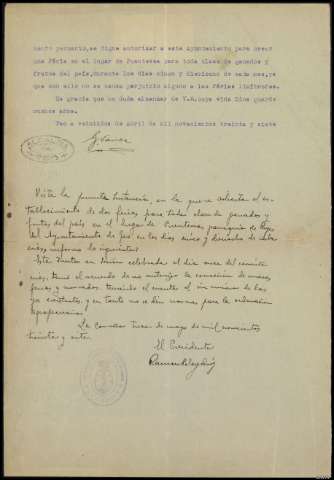 mento pecuario, se digne autorizar a este Ayuntamiento para crear
una Féria en el lugar de Puentexea para toda clase de ganados y
frutos del país, durante los dias cinco y dieciocho de cada mes, ya
que con ello no se causa perjuicio alguno a las Férias limítrofes.
Es gracia que no duda alcanzar de V.E. cuya vida Dios guarde
muchos años.
Teo a veintidos de abril de mil novecientos treinta y siete
Vista la presente instancia, en la que se solicita el es-
tablecimiento de dos ferias para toda clase de ganados y
frutos del país en el lugar de Puentexea, parroquia de
del Ayuntamiento de Teo en los dias cinco y dieciocho de cada
mes, informo lo siguiente:
Esta Junta en sesión celebrada el día once del corriente
mes, tomó el acuerdo de no autorizar la concesión de nuevas
ferias y mercados, teniendo en cuenta el sin número de las
ya existentes, y en tanto no se den normas para la ordenación
agropecuaria.
La Coruña trece de mayo de mil novecientos
treinta y siete
El Presidente